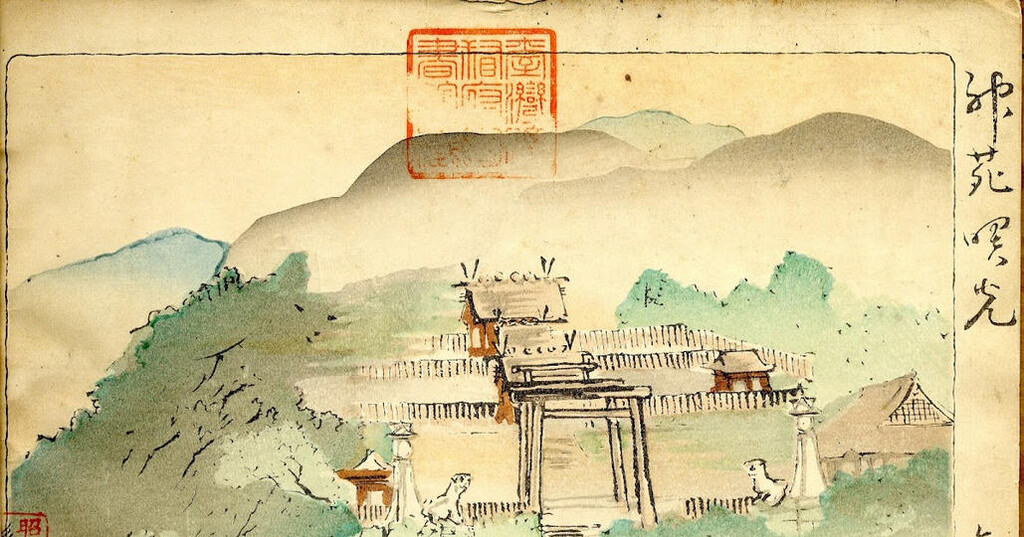 神苑曙光
臺灣總
督府圖
書館藏
昭